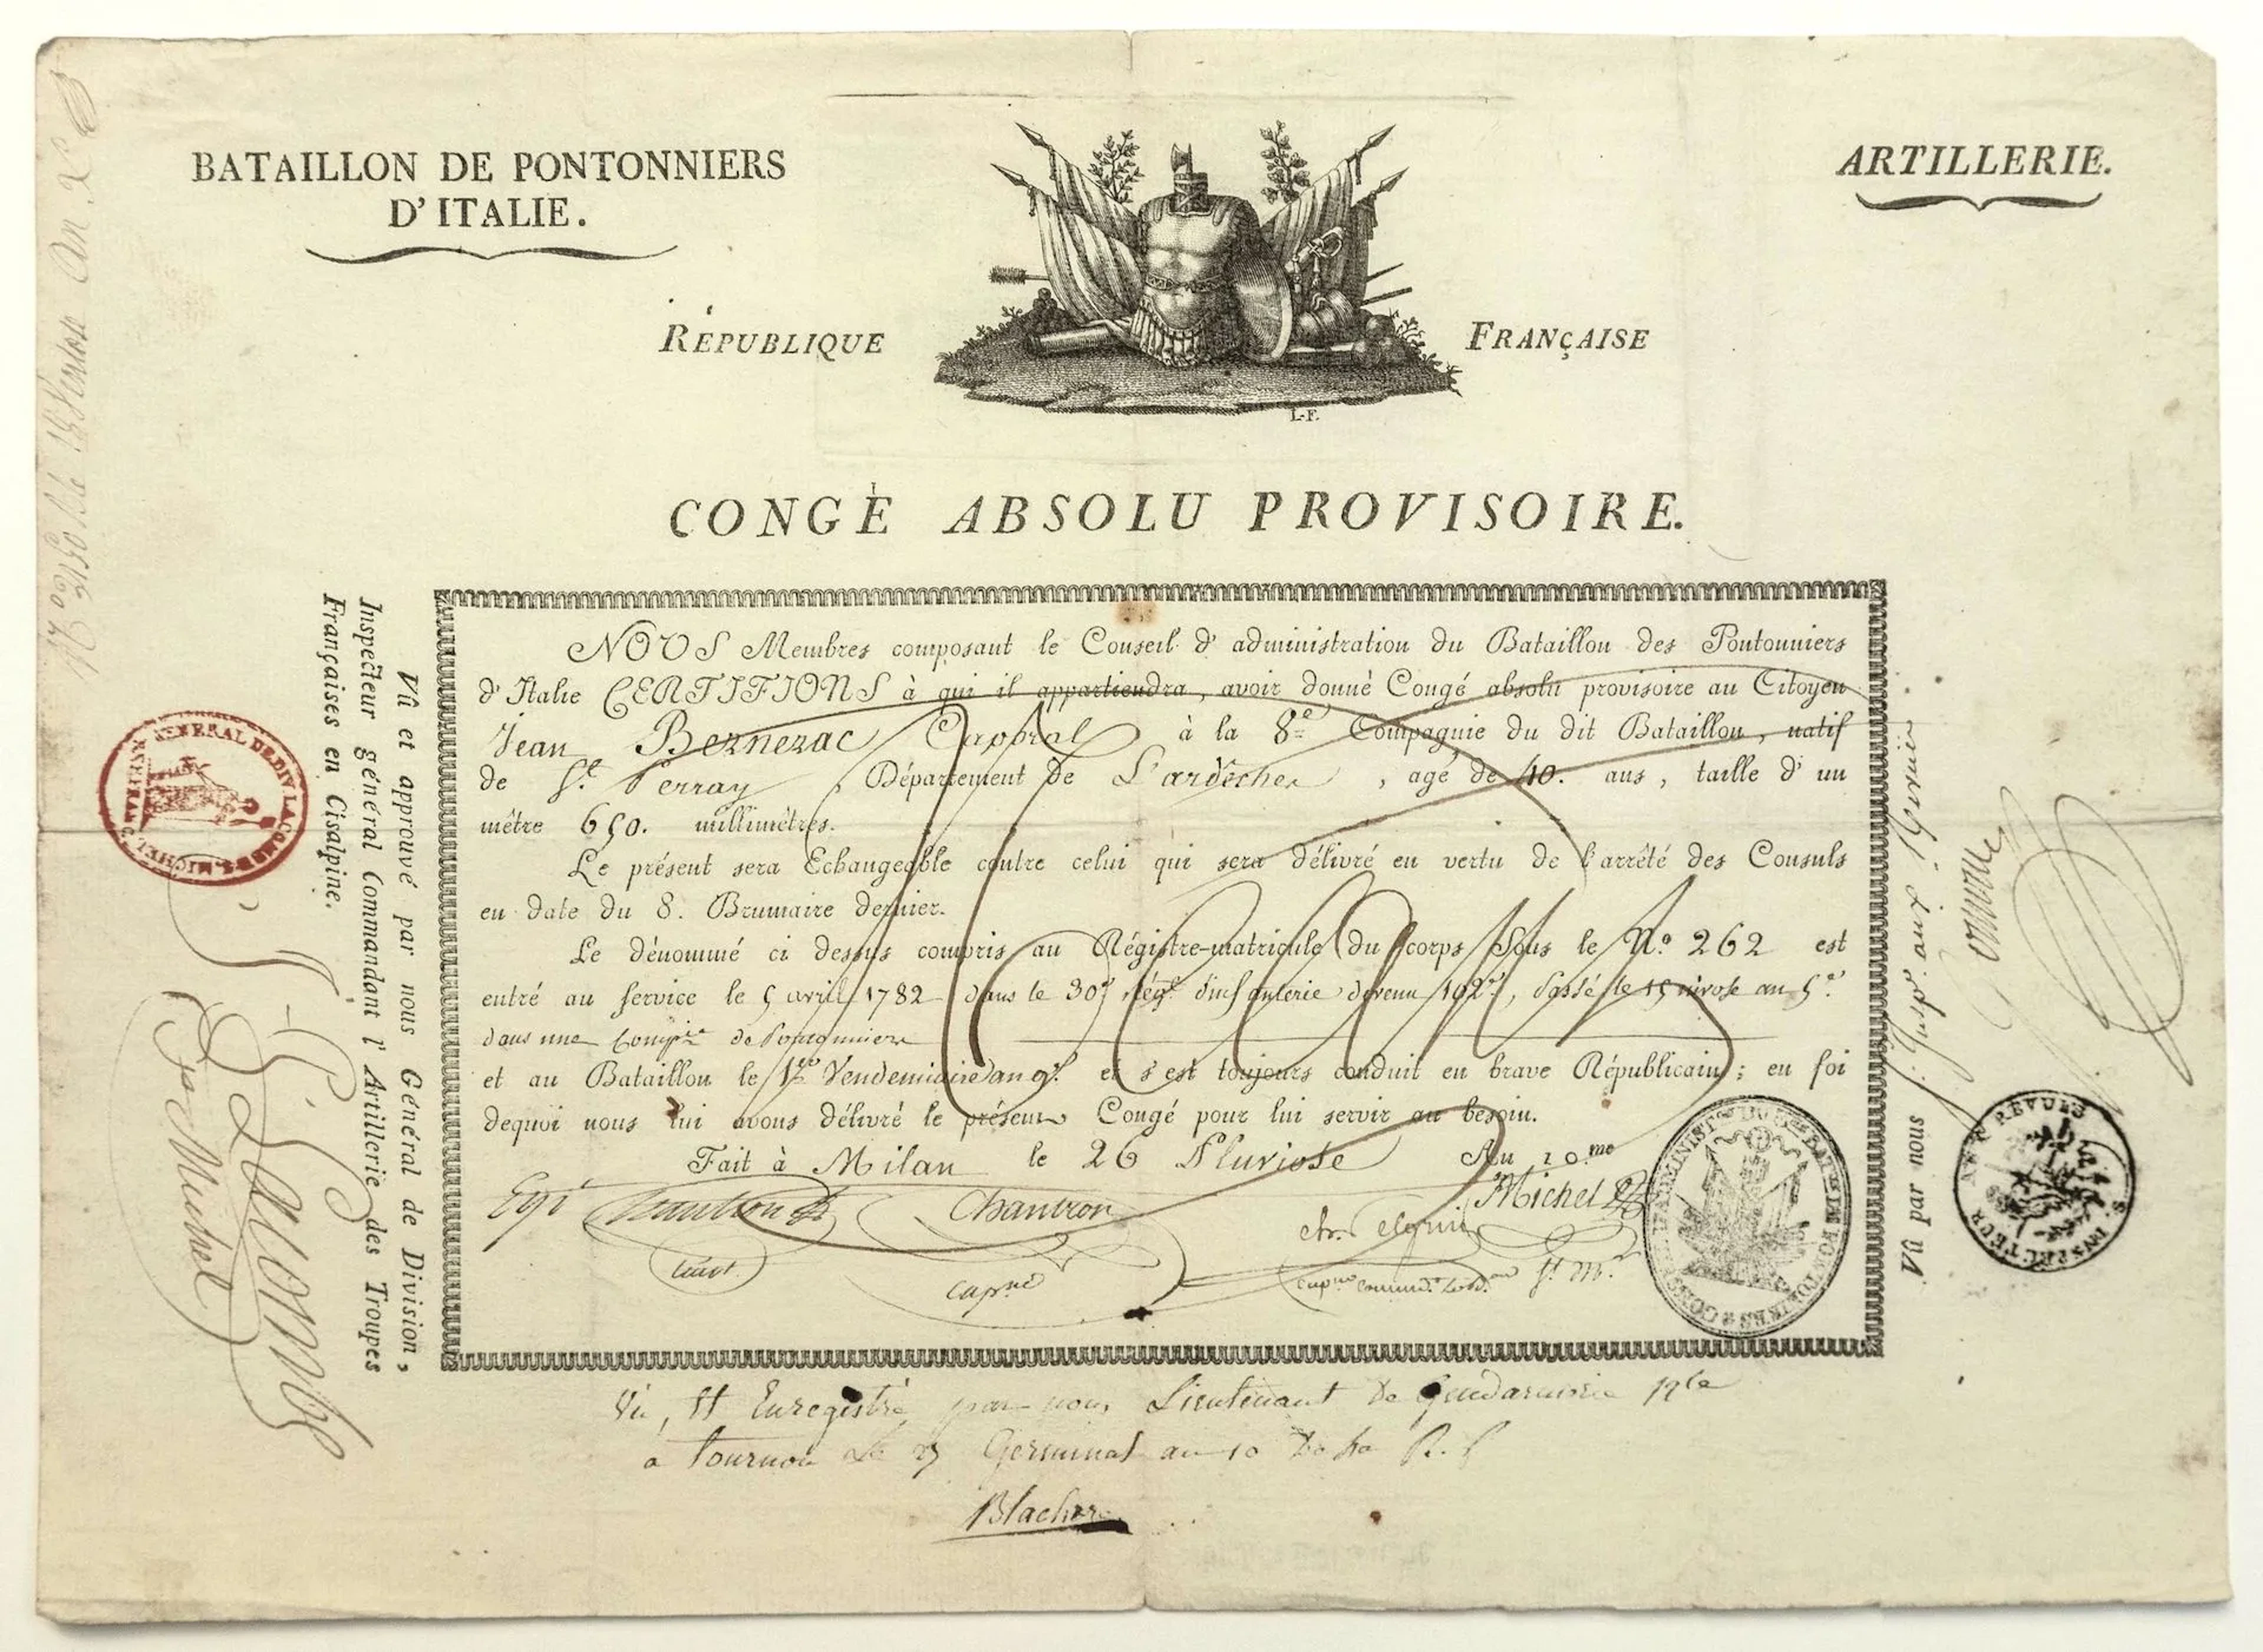 BATAILLON DE PONTONNIERS
D'ITALIE.
ARTILLERIE.
RÉPUBLIQUE FRANÇAISE
L.F.
CONGÈ ABSOLU PROVISOIRE.
NOUS Membres composant le Conseil d'administration du Bataillon des Pontonniers
d'Italie CERTIFIONS à qui il appartiendra, avoir donné Congé absolu provisoire au Citoyen
Jean Bernezac Caporal à la 8e Compagnie du dit Bataillon, natif
de St. Perray, Département de L'ardèche, agé de 40. ans, taille d'un
mètre 650. millimètres.
Le présent sera Echangeable contre celui qui sera délivré en vertu de l'arrêté des Consuls
en date du 8. Brumaire dernier.
Le dénommé ci dessus compris au Régistre-matricule du corps Sous le N.o 262 est
entré au service le 5 avril 1782 dans le 30e Régt. d'infanterie devenu 102e, Passé le 15 nivose an 5e.
dans une Compie de Pontonniers
et au Bataillon le 1er Vendemiaire an 9e. et s'est toujours conduit en brave Républicain; en foi
dequoi nous lui avons délivré le présent Congé pour lui servir au besoin.
Fait à Milan le 26 Pluviose An 10.me
Chantron
Michel
Lieut.
capne
Vû et approuvé par nous Général de Division,
Inspecteur général Commandant l'Artillerie des Troupes
Françaises en Cisalpine.
Lacombe
St. Michel
GENERAL DE DIV LACOMBE S. MICHEL
Vû par nous
S. INSPECTEUR AUX REVUES
Vû, Et Enregistré par nous Lieutenant De Gendarmerie Nle
à Tournon Le 25 Germinal an 10 De La R. f
Blachere